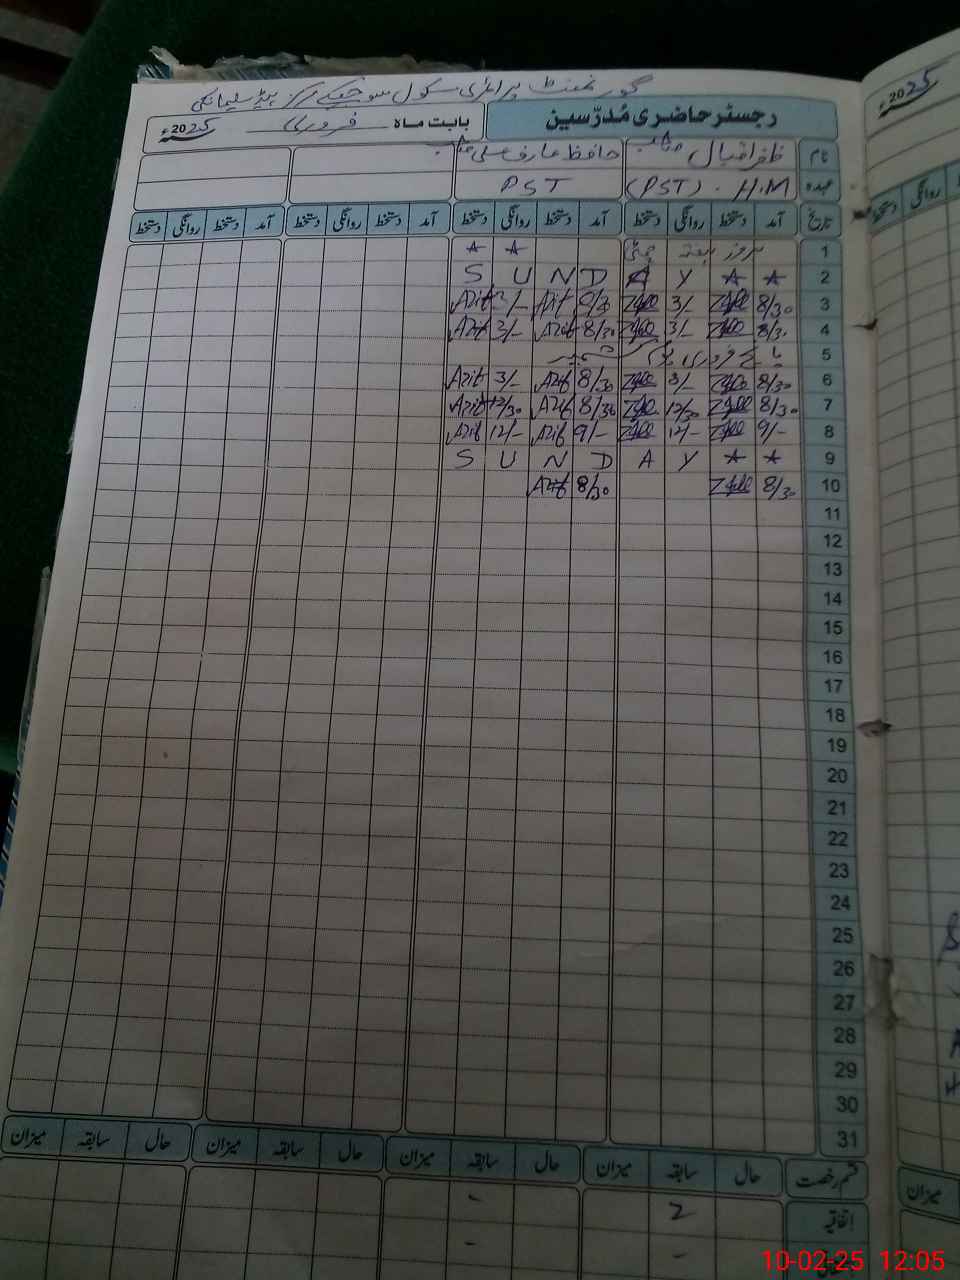 گورنمنٹ پرائمری سکول سوجیکے مرکز ہیڈ سلیمانکی
رجسٹر حاضری مُدرّسین بابت ماہ فروری 2025ء
نام ظفر اقبال صاحب حافظ عارف علی صاحب
عہدہ H.M (PST) PST
تاریخ آمد دستخط روانگی دستخط آمد دستخط روانگی دستخط آمد دستخط روانگی دستخط آمد دستخط روانگی دستخط
1 بروز ہفتہ چھٹی
2 S U N D A Y
3 8/30 3/- 8/30 3/-
4 8/30 3/- 8/30 3/-
5 پانچ فروری یوم کشمیر
6 8/30 3/- 8/30 3/-
7 8/30 12/30 8/30 12/30
8 9/- 12/- 9/- 12/-
9 S U N D A Y
10 8/30 8/30
11
12
13
14
15
16
17
18
19
20
21
22
23
24
25
26
27
28
29
30
31
قسم رخصت حال سابقہ میزان حال سابقہ میزان حال سابقہ میزان حال سابقہ میزان
اتفاقیہ 2 -
- -
2025ء
روانگی دستخط
میزان
10-02-25 12:05